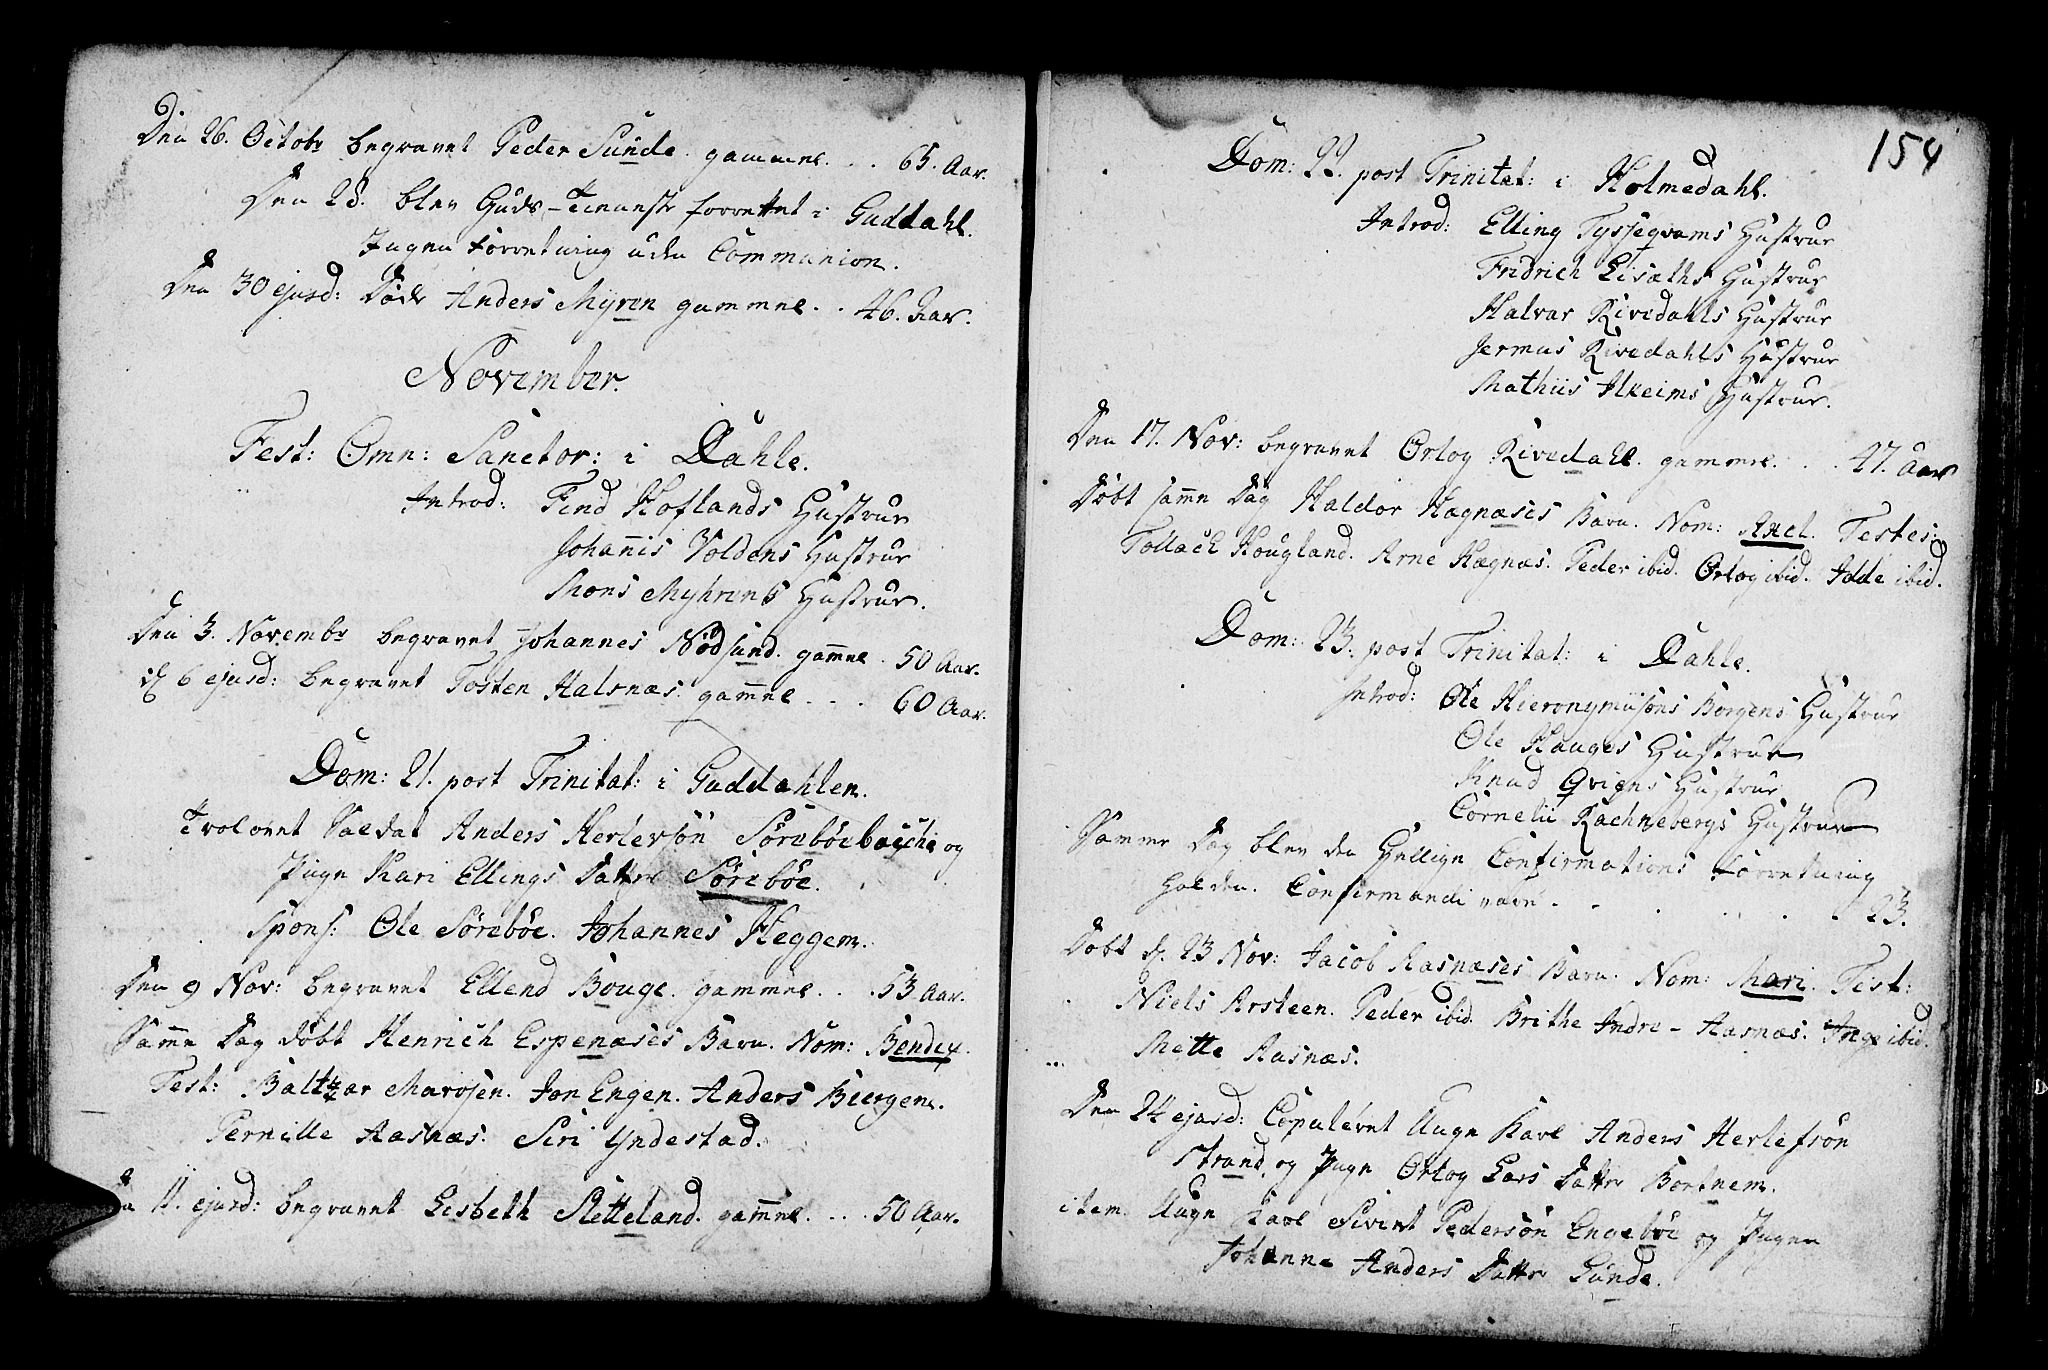 Den 26. Octobr begravet Peder Sunde. gammel . . . 65. Aar.
Den 28. blev Guds-Tieneste forrettet i Guddahl.
Ingen Forretning uden Communion.
Den 30 ejusd: Døde Anders Myren gammel . . 46. Aar.
November.
Fest: Omn: Sanctor: i Dahle.
Introd: Find Hoflands Hustrue
Johannis Voldens Hustrue
Mons Myhrens Hustrue.
Den 3. Novembr begravet Johannes Nødsund. gamel . 50 Aar.
d 6 ejusd: begravet Tosten Halsnæs. gamel . . . 60 Aar.
Dom: 21. post Trinitat: i Guddahlen.
Trolovet Soldat Anders Herlevsön Söreböebache og
Pige Kari Ellings Datter Söreböe.
Spons: Ole Söreböe. Johannes Heggem.
Den 9 Nov: begravet Ellend Bouge. gammel . . . 53 Aar.
Samme Dag døbt Henrich Espenæses Barn. Nom: Bendix.
Test: Baltzar Marosen. Jon Engen. Anders Biergen.
Pernille Aasnæs. Siri Yndestad.
11. ejusd: begravet Lisbeth Sletteland. gamel . . . 50 Aar.
154
Dom: 22. post Trinitat: i Holmedahl.
Introd: Elling Tysseqvams Hustrue
Fridrich Lisæths Hustrue
Halvar Rivedahls Hustrue
Jermus Rivedahls Hustrue
Mathiis Ilheims Hustrue.
Den 17. Nov: begravet Ortog Rivedahl. gammel . . . 47. Aar
Døbt samme Dag Haldor Hægnæses Barn. Nom: Axel. Testes:
Tollach Hougland. Arne Hægnæs. Peder ibid. Ortog ibid. Jdde ibid.
Dom: 23. post Trinitat: i Dahle.
Introd: Ole Hieronymiisöns Borgens Hustrue
Ole Hauges Hustrue
Knud Qviens Hustrue
Cornelii Rachnebergs Hustrue
Samme Dag blev den Hellige Confirmations Forretning
holden. Confirmandi vare . . . . . . 23.
Døbt d. 23 Nov: Jacob Aasnæses Barn. Nom: Mari. Test:
Niels Arsteen. Peder ibid. Brithe Indre-Aasnæs. Inge ibid.
Mette Aasnæs.
Den 24 ejusd: Copuleret Unge Karl Anders Herlefsön
Strand og Pige Ortog Lars Datter Bortnem.
item Unge Karl Sivert Pedersön Engeböe og Pigen
Johanne Anders Datter Sunde.